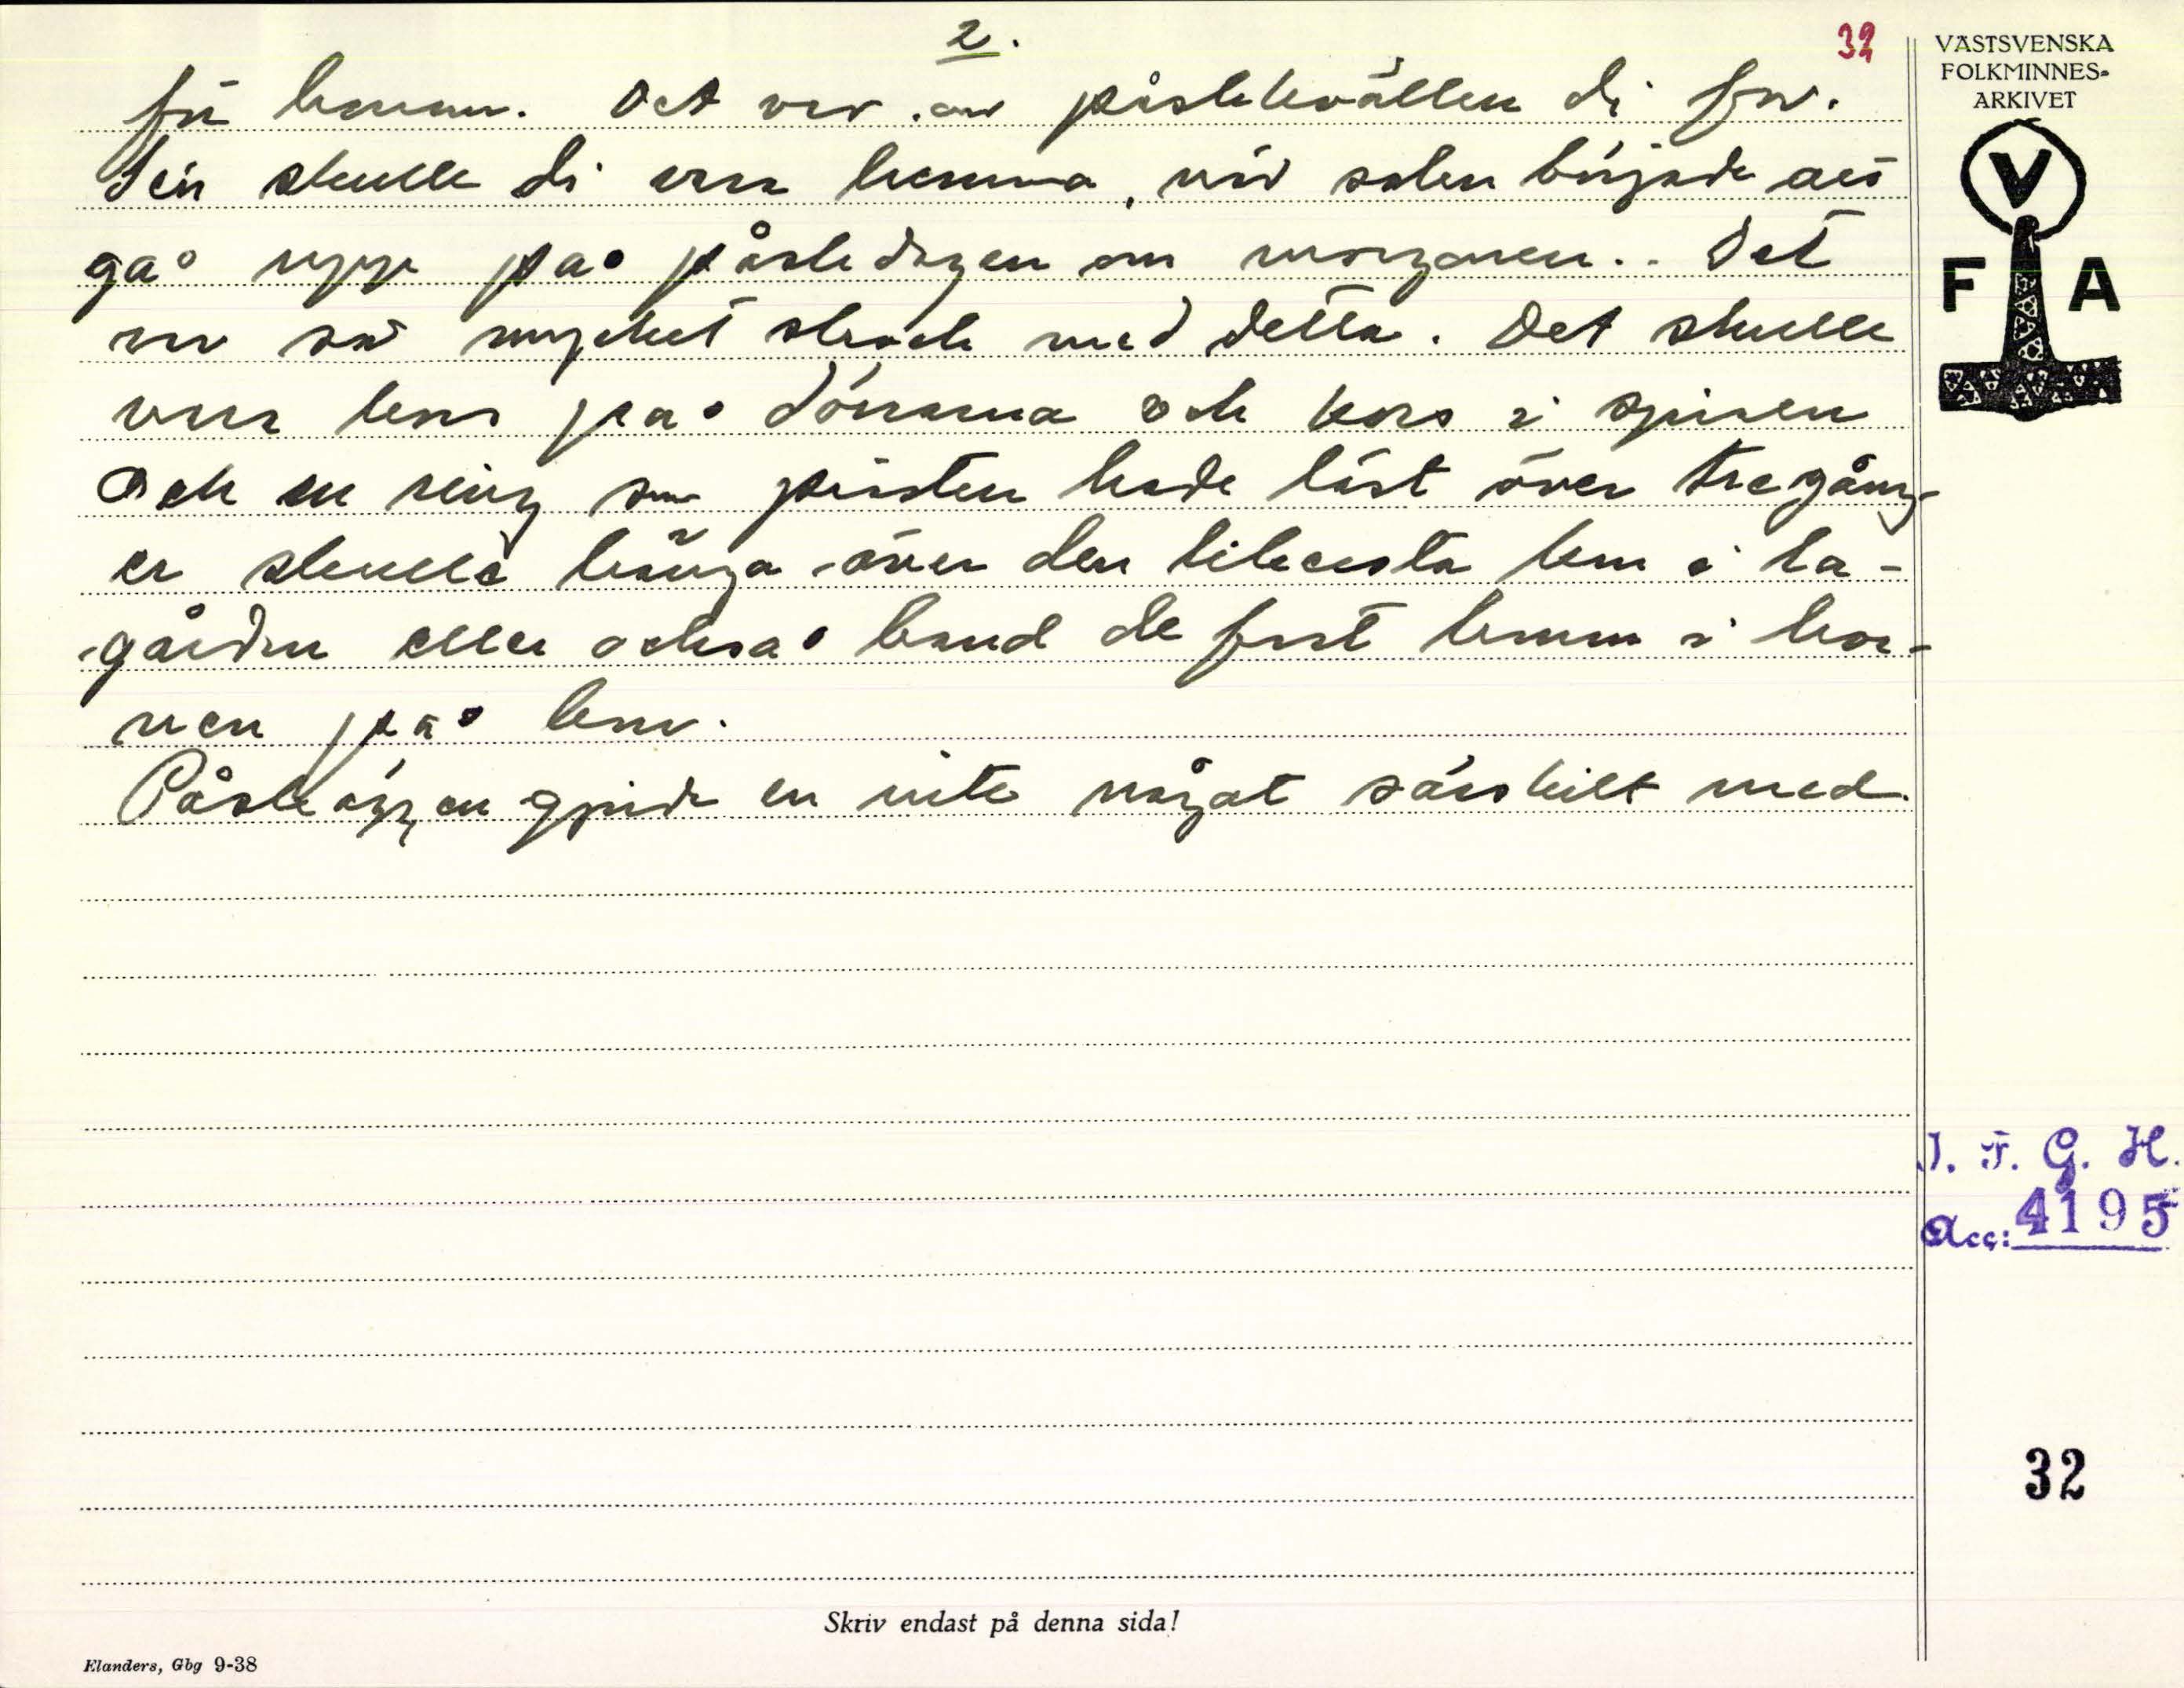 2.
32
för henne. Det var om påskkvällen di for.
Sen skulle di vara hemma, när solen började att
gå upp på påskdagen om morgonen.. Det
var så mycket skrock med detta. Det skulle
vara kors på dörrarna och kors i spisen
och en ring som prästen hade läst över tre gång-
er skulle hänga över den likaste kon i la-
gården eller också band de fast henne i hor-
nen på kon.
Påskäggen gjorde en inte något särskilt med.
VÄSTSVENSKA
FOLKMINNES-
ARKIVET
V
F A
I. F. G. H.
Acc: 4195
32
Skriv endast på denna sida!
Elanders, Gbg 9-38